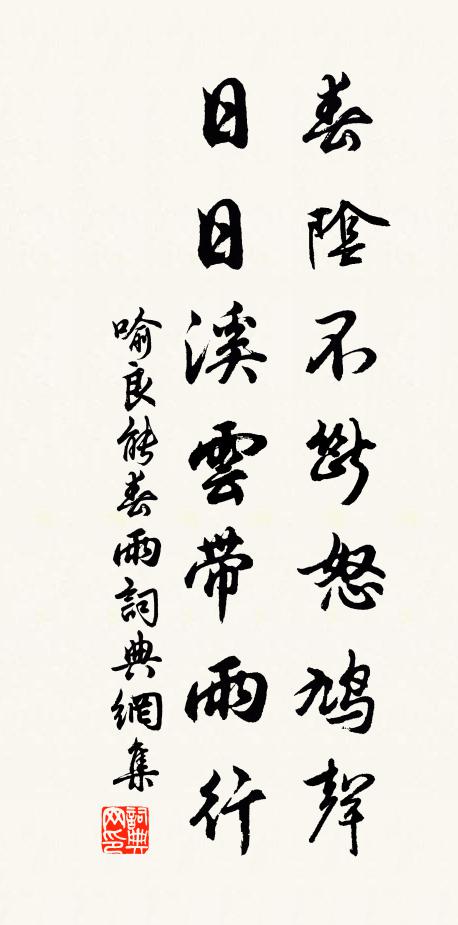 春陰不斷怒鳩聲
日日溪雲帶雨行
喻良能春雨詞典網集
詞典网印